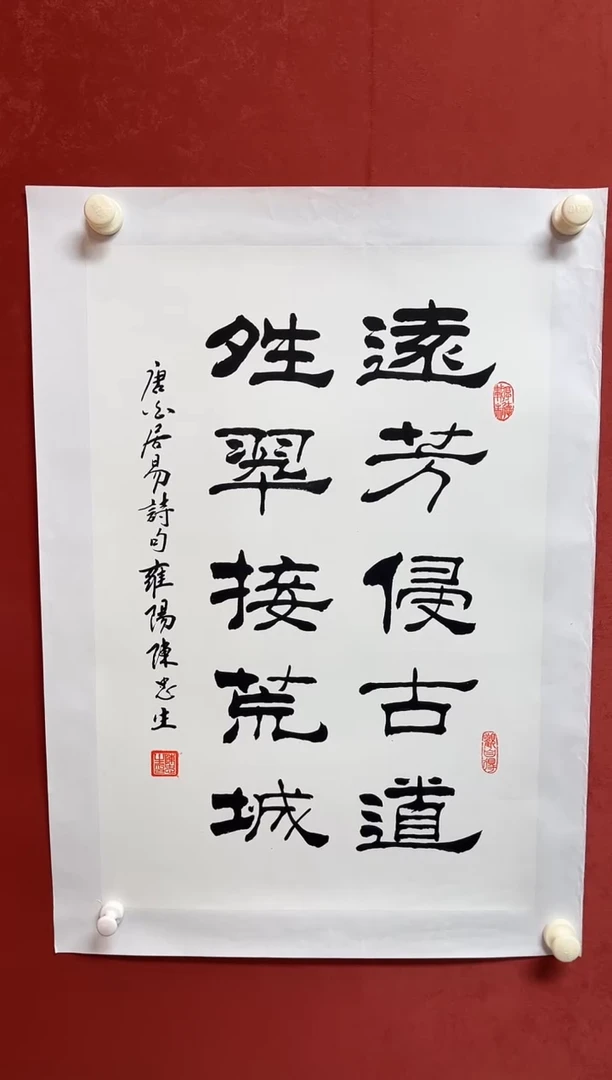 遠芳侵古道
夝翠接荒城
唐白居易詩句雍陽陳忠生